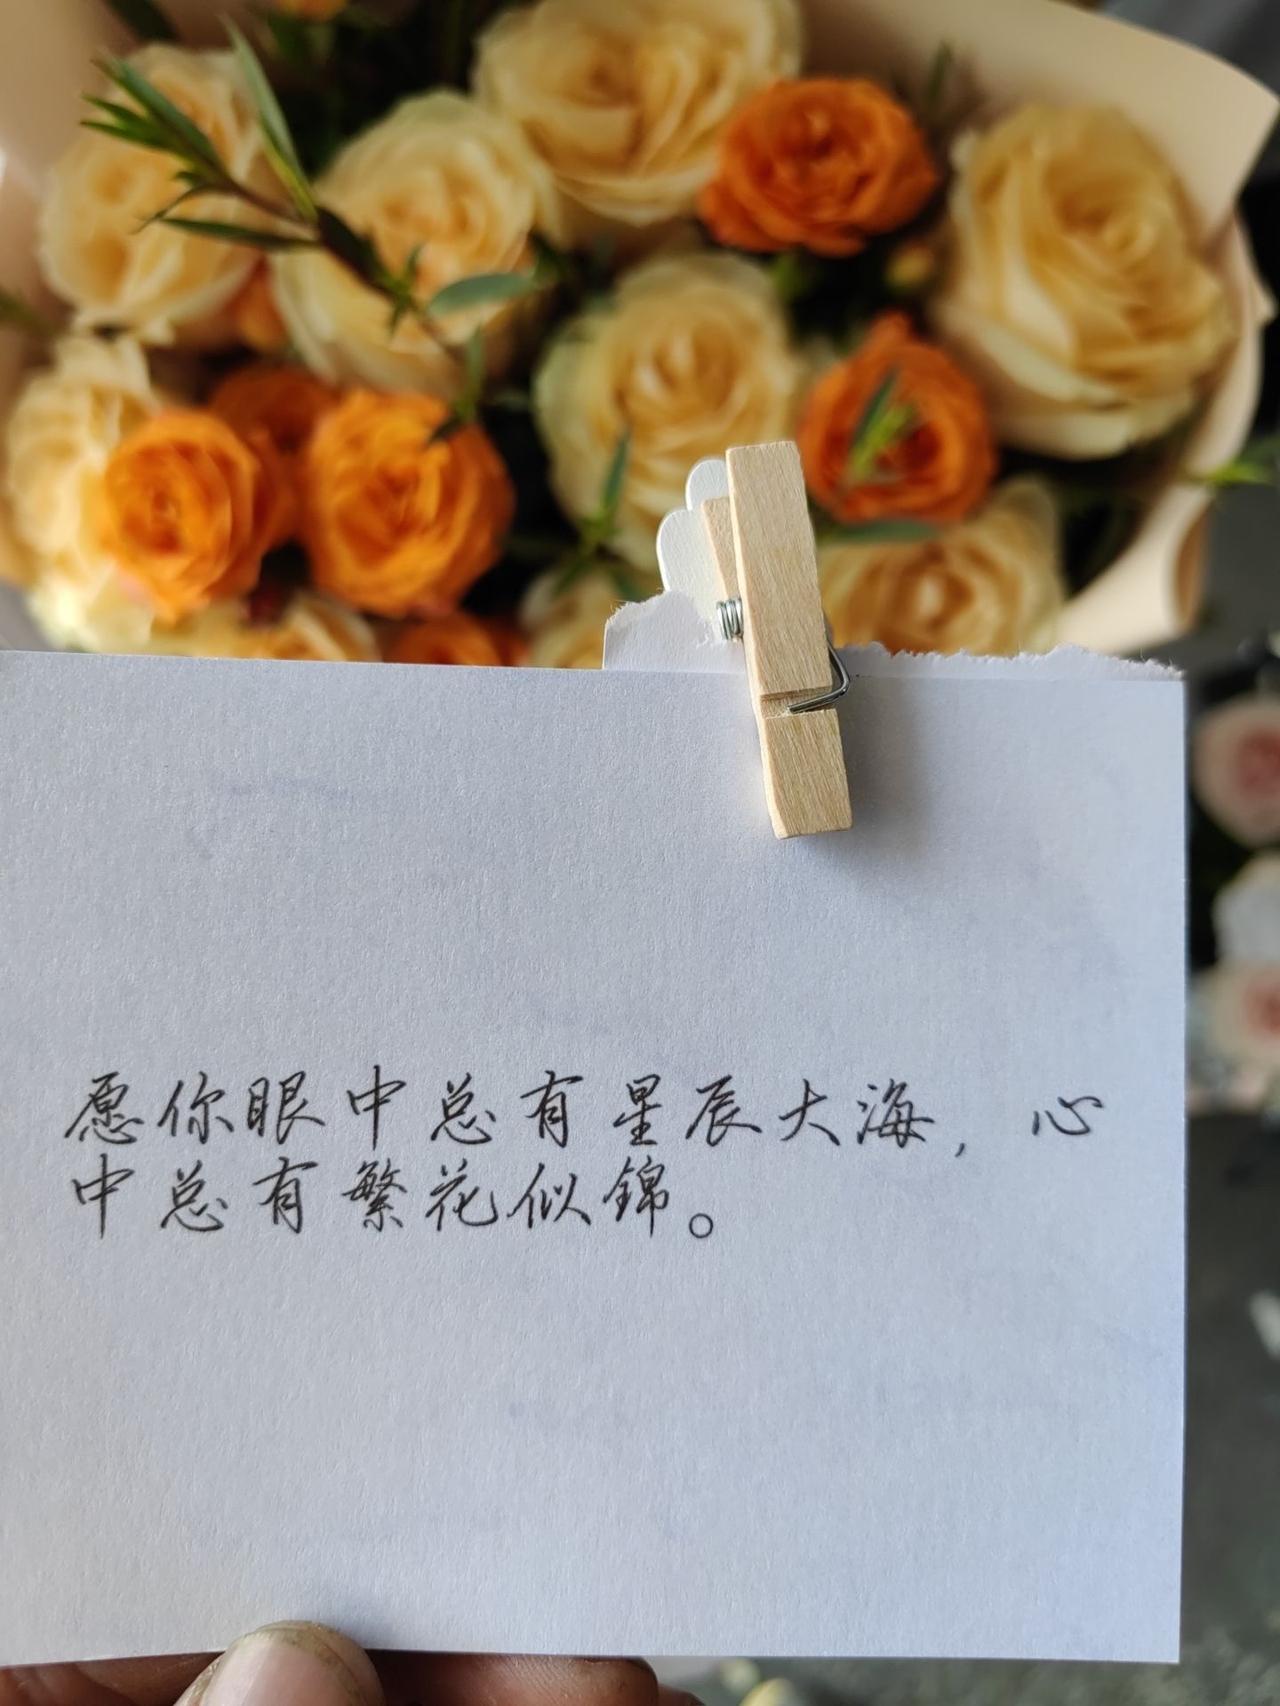 愿你眼中总有星辰大海，心
中总有繁花似锦。